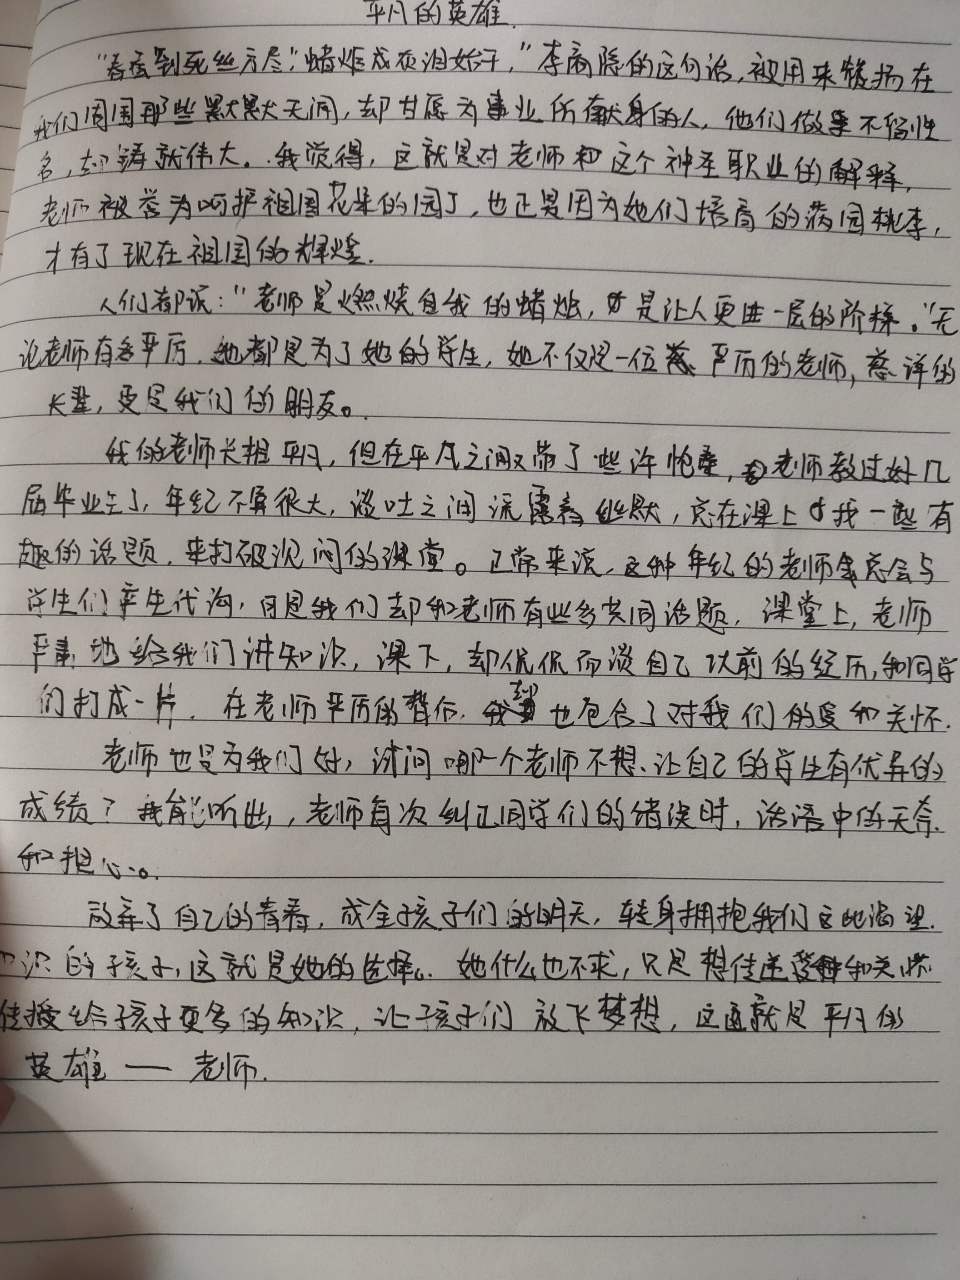 平凡的英雄
“春蚕到死丝方尽,”蜡炬成灰泪始干,”李商隐的这句话,被用来赞扬在
我们周围那些默默无闻,却甘愿为事业所献身的人,他们做事不留姓
名,却铸就伟大。我觉得,这就是对老师和这个神圣职业的解释,
老师被誉为呵护祖国花朵的园丁,也正是因为她们培育的满园桃李,
才有了现在祖国的辉煌.
人们都说:“老师是燃烧自我的蜡烛,是让人更进一层的阶梯。”无
论老师有多严厉,她都是为了她的学生,她不仅是一位严厉的老师,慈祥的
长辈,更是我们的朋友。
我的老师长相平凡,但在平凡之间又带了些许,老师教过好几
届毕业生了,年纪不算很大,谈吐之间流露着幽默,总在课上找一些有
趣的话题,来打破沉闷的课堂。正常来说,这种年纪的老师总会与
学生们产生代沟,可是我们却和老师有些多共同话题,课堂上,老师
严肃地给我们讲知识,课下,却侃侃而谈自己以前的经历,和同学
们打成一片.在老师严厉的背后,却也包含了对我们的爱和关怀.
老师也是为我们好,试问哪一个老师不想让自己的学生有优异的
成绩?我能听出,老师每次纠正同学们的错误时,话语中的无奈
和担心。
放弃了自己的青春,成全孩子们的明天,转身拥抱我们这些渴望
识的孩子,这就是她的选择。她什么也不求,只是想传递和关怀
传授给孩子更多的知识,让孩子们放飞梦想,这就是平凡的
英雄——老师.